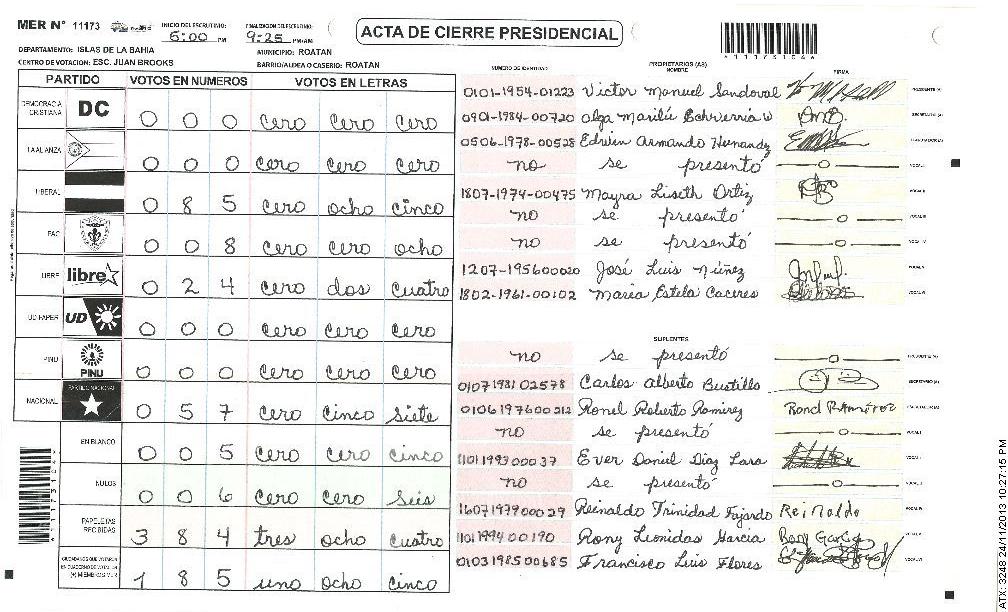 MER N° 11173 INICIO DEL ESCRUTINIO: 6:00 PM FINALIZACION DEL ESCRUTINIO: 9:25 PM/AM
ACTA DE CIERRE PRESIDENCIAL
DEPARTAMENTO: ISLAS DE LA BAHIA MUNICIPIO: ROATAN
CENTRO DE VOTACION: ESC. JUAN BROOKS BARRIO/ALDEA O CASERIO: ROATAN
PARTIDO VOTOS EN NUMEROS VOTOS EN LETRAS
DEMOCRACIA CRISTIANA DC 0 0 0 cero cero cero
LA ALIANZA 0 0 0 cero cero cero
LIBERAL 0 8 5 cero ocho cinco
PAC 0 0 8 cero cero ocho
LIBRE libre 0 2 4 cero dos cuatro
UD FAPER UD 0 0 0 cero cero cero
PINU PINU 0 0 0 cero cero cero
NACIONAL PARTIDO NACIONAL 0 5 7 cero cinco siete
EN BLANCO 0 0 5 cero cero cinco
NULOS 0 0 6 cero cero seis
PAPELETAS RECIBIDAS 3 8 4 tres ocho cuatro
CIUDADANOS QUE VOTARON EN CUADERNO DE VOTACION (+) MIEMBROS MER 1 8 5 uno ocho cinco
NUMERO DE IDENTIDAD PROPIETARIOS (AS) NOMBRE FIRMA
0101-1954-01223 Victor Manuel Sandoval PRESIDENTE (A)
0901-1984-00720 Olga Marilú Echverria W SECRETARIO (A)
0506-1978-00528 Edwin Armando Hernandz
no se presentó VOCAL I
1807-1974-00475 Mayra Liseth Ortiz VOCAL II
no se presentó VOCAL III
no se presentó VOCAL IV
1207-195600020 José Luis Núñez VOCAL V
1802-1961-00102 Maria Estela Caceres VOCAL VI
SUPLENTES
no se presentó PRESIDENTE (A)
0107198102578 Carlos Alberto Bustillo SECRETARIO (A)
0106197600212 Ronel Roberto Ramirez Ronel Ramírez
no se presentó VOCAL I
1101199300037 Ever Daniel Diaz Lara VOCAL II
no se presentó VOCAL III
1607197900029 Reinaldo Trinidad Fajardo Reinaldo VOCAL IV
1101199400190 Rony Leonidas Garcia Rony Garcia VOCAL V
0103198500685 Francisco Luis Flores VOCAL VI
ATX: 3248 24/11/2013 10:27:15 PM